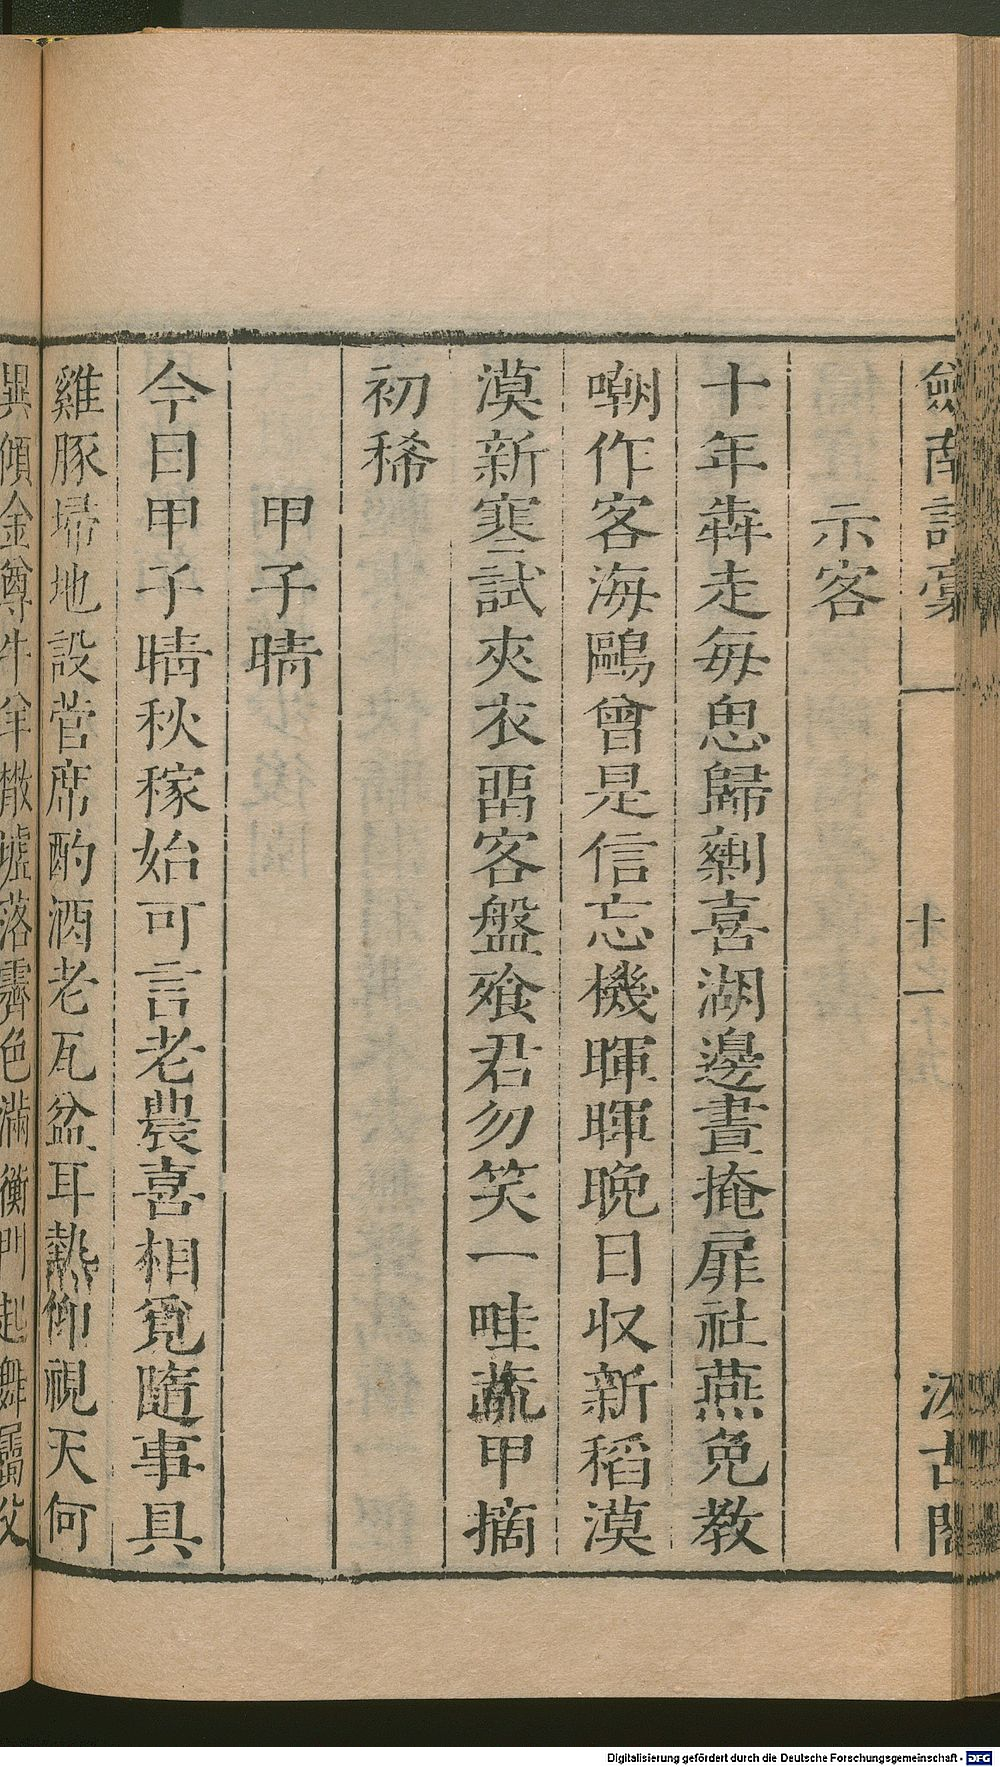 劍南詩稾
十一
汲古閣
示客
十年犇走每思歸剩喜湖邊晝掩扉社燕免教
嘲作客海鷗曾是信忘機暉暉晚日收新稻漠
漠新寒試夾衣畱客盤飱君勿笑一畦蔬甲摘
初稀
甲子晴
今日甲子晴秋稼始可言老農喜相覓隨事具
雞豚埽地設菅席酌酒老瓦盆耳熱仰視天何
異傾金尊牛羊散墟落霽色滿衡門起舞屬父
Digitalisierung gefördert durch die Deutsche Forschungsgemeinschaft - DFG